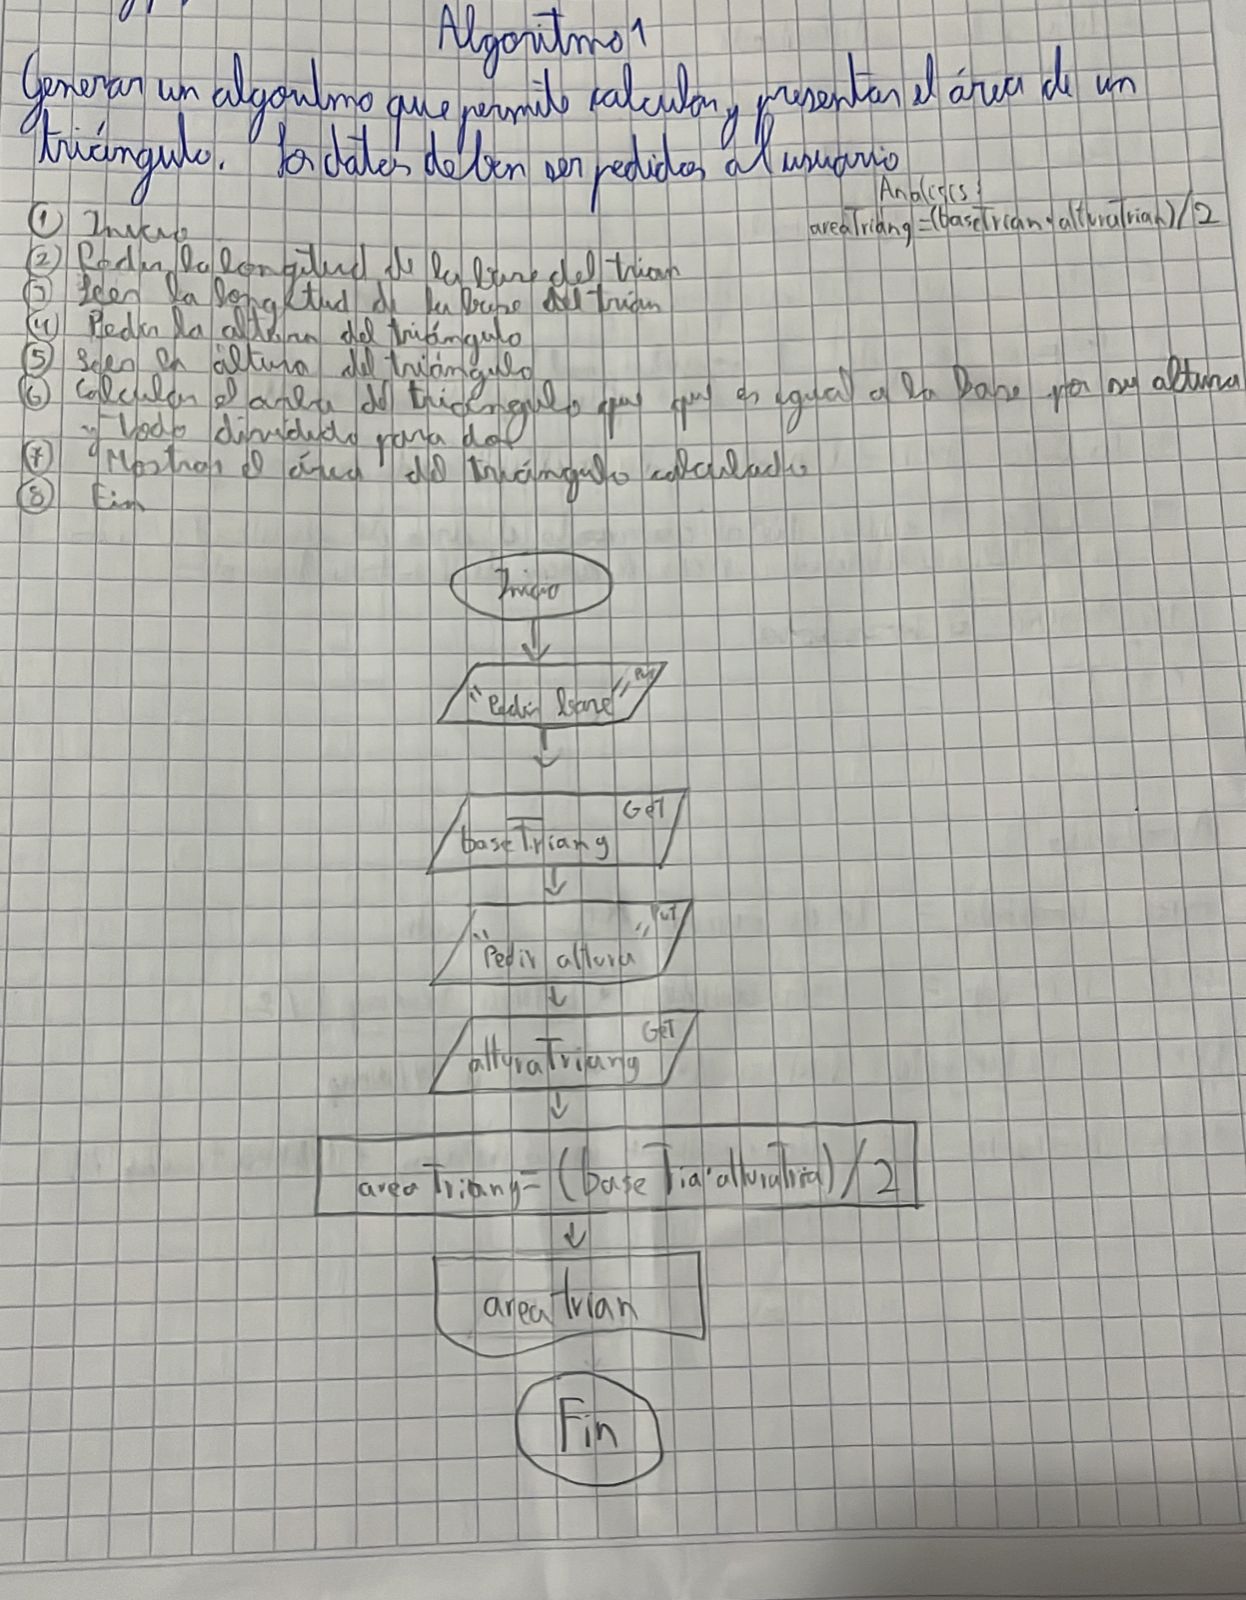 Algoritmo 1
Generar un algoritmo que permite calcular y presentar el área de un
triángulo. Los datos deben ser pedidos al usuario
Analisis:
areaTriang=(baseTrian·alturaTrian)/2
① Inicio
② Pedir la longitud de la base del trian
③ Leer la longitud de la base del trian
④ Pedir la altura del triángulo
⑤ Leer la altura del triángulo
⑥ Calcular el area del triángulo que que es igual a la base por su altura
y todo dividido para dos
⑦ Mostrar el área del triángulo calculado
⑧ Fin
Inicio
"Pedir base" Put
GET
baseTriang
"Pedir altura" PUT
GET
alturaTriang
areaTriang=(baseTria·alturaTria)/2
areaTrian
Fin